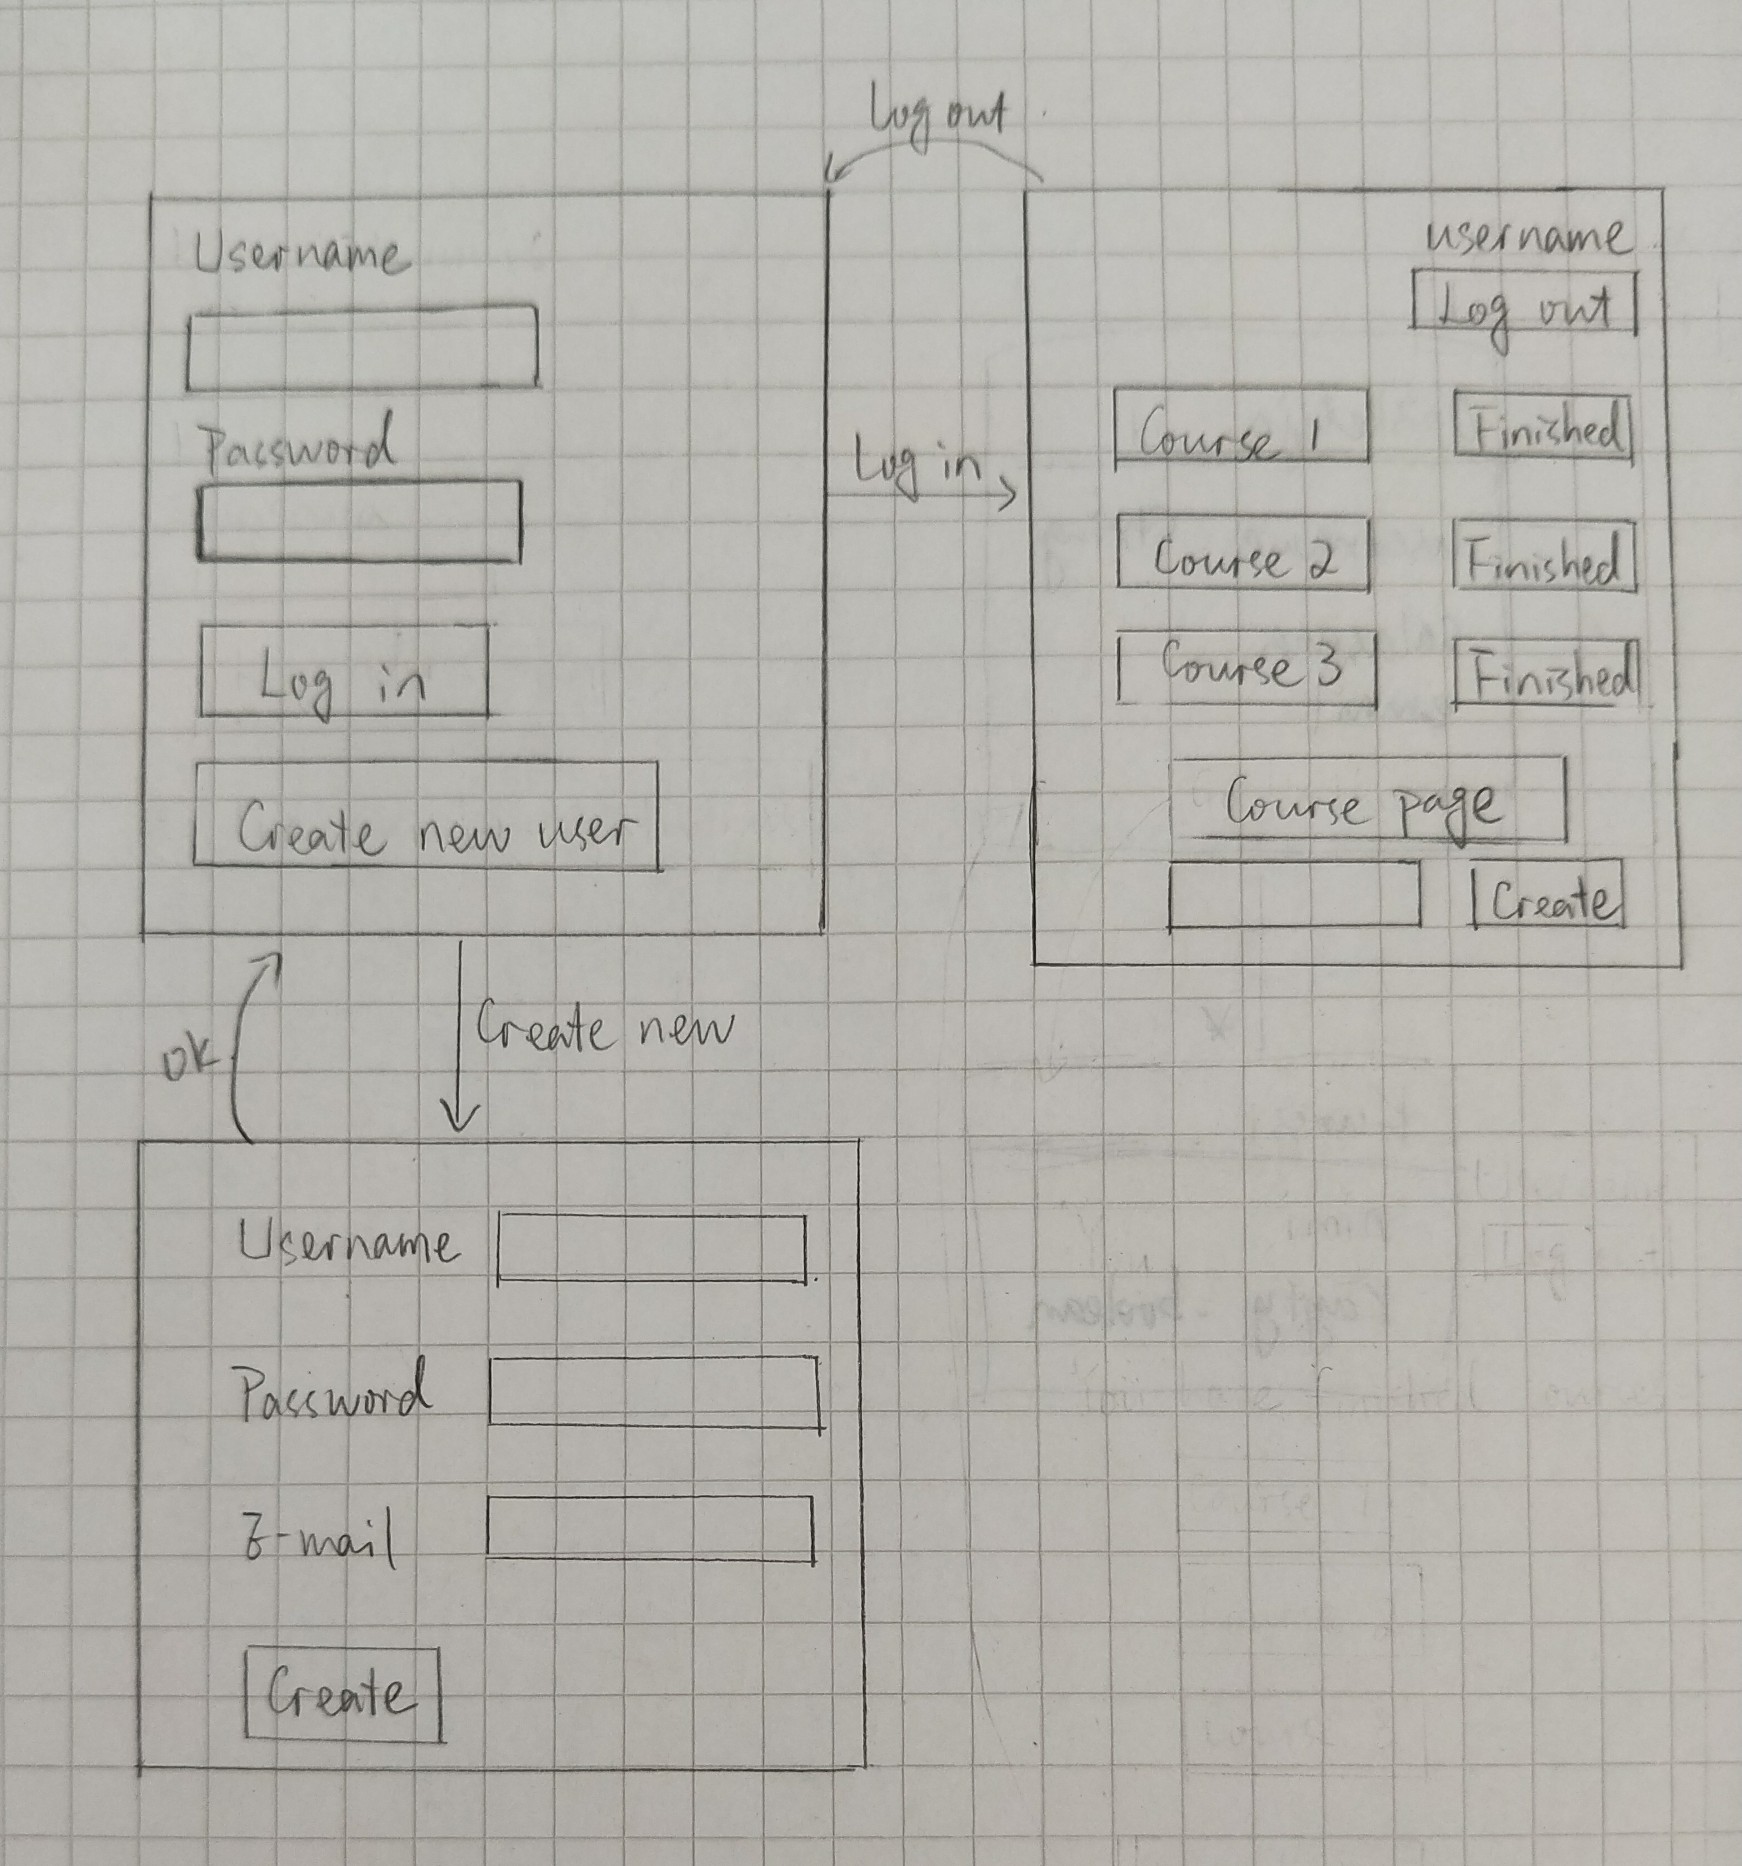 Log out
Username
Password
Log in
Create new user
Log in
username
Log out
Course 1 Finished
Course 2 Finished
Course 3 Finished
Course page
Create
OK
Create new
Username
Password
E-mail
Create